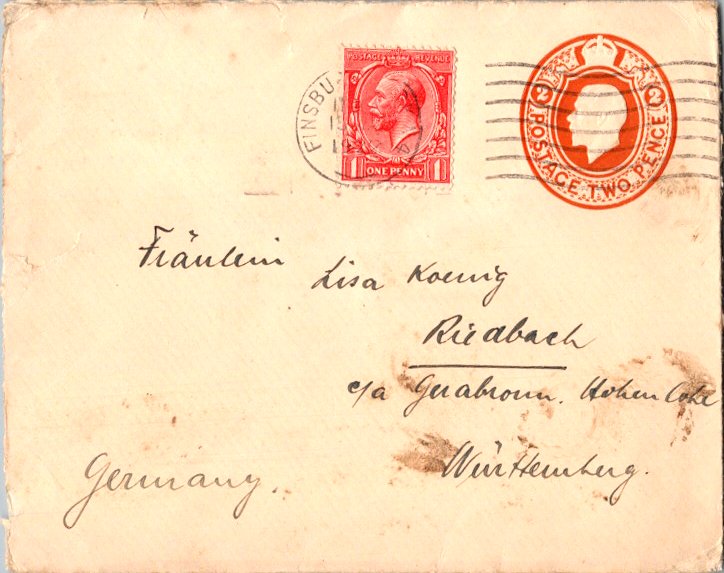 POSTAGE REVENUE
FINSBU
1 ONE PENNY 1
2 2
POSTAGE TWO PENCE
Fräulein Lisa Koenig
Riedbach
c/a Gerabronn. Hohenlohe
Württemberg.
Germany.